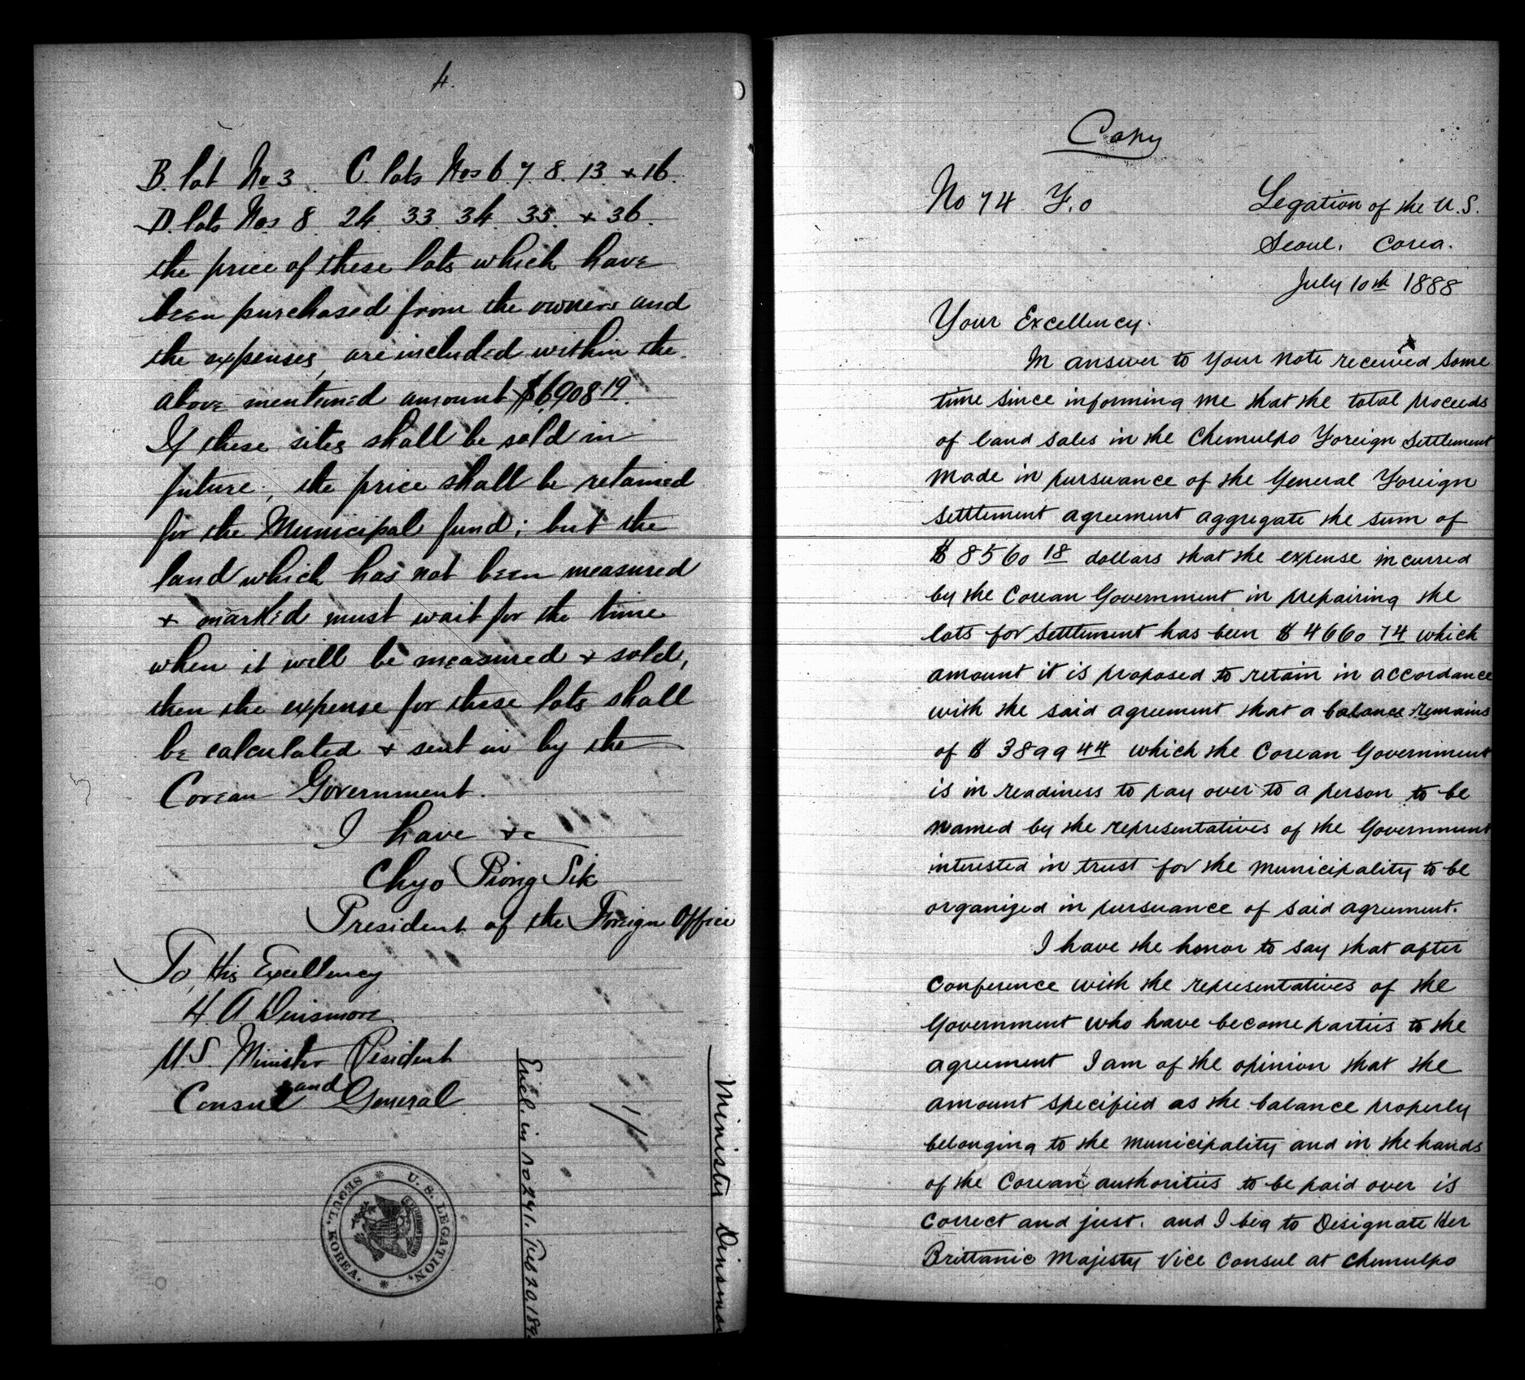 4.
B. lot No 3. C. lots Nos 6 7 8. 13 + 16.
D. lots Nos 8. 24. 33. 34. 35. + 36.
the price of these lots which have
been purchased from the owners and
the expenses, are included within the
above mentioned amount $6908 19.
If these sites shall be sold in
future, the price shall be retained
for the Municipal fund; but the
land which has not been measured
+ marked must wait for the time
when it will be measured + sold,
then the expense for these lots shall
be calculated + sent in by the
Corean Government.
I have +c
Chyo Piong Sik
President of the Foreign Office
To, His Excellency
H. A Dinsmore
U.S. Minister Resident
and
Consul General
U. S. LEGATION,
SEOUL, KOREA.
Encl. in no 241. Feb 20. 189
Minister Dinsmor
Copy
No 74 F.o
Legation of the U.S.
Seoul. Corea.
July 10th 1888
Your Excellency.
In answer to your note received some
time since informing me that the total proceeds
of land sales in the Chemulpo Foreign Settlement
made in pursuance of the General Foreign
Settlement agreement aggregate the sum of
$ 8560 18 dollars that the expense incurred
by the Corean Government in prepairing the
lots for settlement has been $ 4660 74 which
amount it is proposed to retain in accordance
with the said agreement that a balance remains
of $ 3899 44 which the Corean Government
is in readiness to pay over to a person to be
named by the representatives of the Government
interested in trust for the municipality to be
organized in pursuance of said agreement.
I have the honor to say that after
conference with the representatives of the
Government who have become parties to the
agreement I am of the opinion that the
amount specified as the balance properly
belonging to the municipality and in the hands
of the Corean authorities to be paid over is
correct and just. and I beg to Designate Her
Brittanic Majesty Vice Consul at Chemulpo